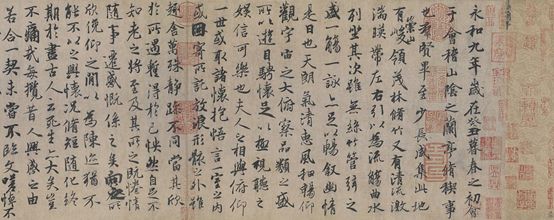 永和九年歲在癸丑暮春之初會
于會稽山陰之蘭亭脩禊事
也群賢畢至少長咸集此地
有崇山峻領茂林脩竹又有清流激
湍暎帶左右引以為流觴曲水
列坐其次雖無絲竹管弦之
盛一觴一詠亦足以暢敘幽情
是日也天朗氣清惠風和暢仰
觀宇宙之大俯察品類之盛
所以遊目騁懷足以極視聽之
娛信可樂也夫人之相與俯仰
一世或取諸懷抱悟言一室之內
或因寄所託放浪形骸之外雖
趣舍萬殊靜躁不同當其欣
於所遇暫得於己怏然自足不
知老之將至及其所之既惓情
隨事遷感慨係之矣向之所
欣俛仰之閒以為陳迹猶不
能不以之興懷況脩短隨化終
期於盡古人云死生亦大矣豈
不痛哉每攬昔人興感之由
若合一契未嘗不臨文嗟悼不